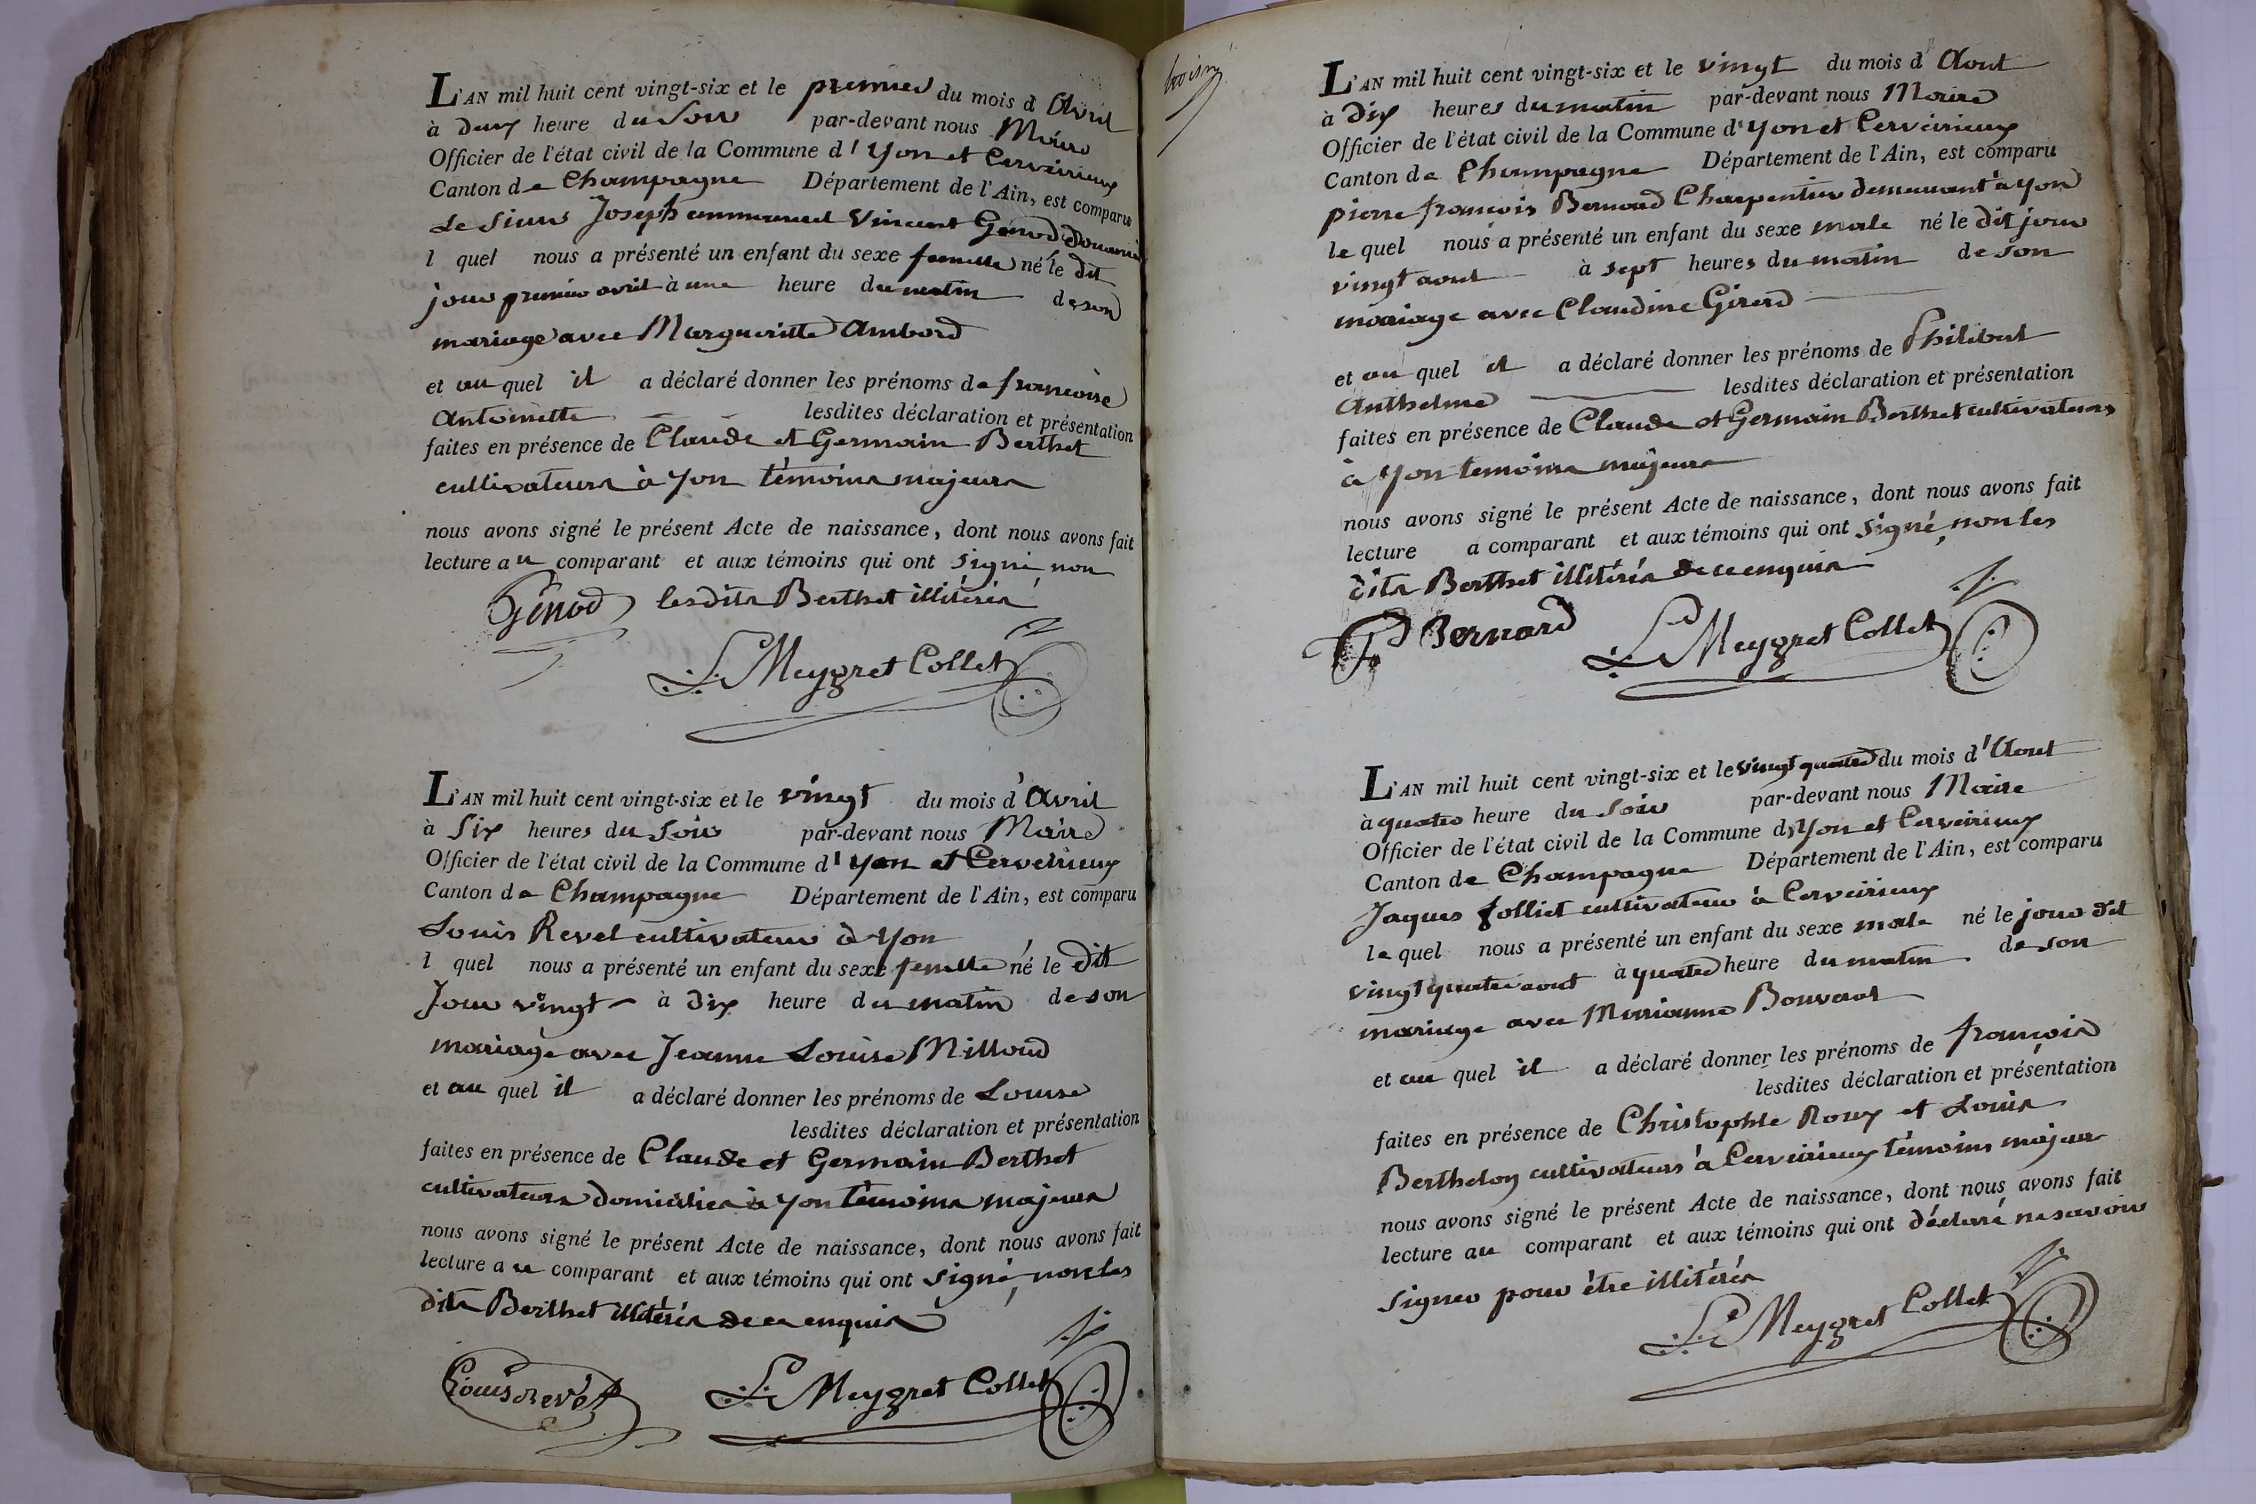 L'AN mil huit cent vingt-six et le premier du mois d'Avril
à deux heure du Soir par-devant nous Maire
Officier de l'état civil de la Commune d'yon et Cerveirieux
Canton de Champagne Département de l'Ain, est comparu
Le Sieur Joseph emmanuel Vincent Génod Douanié
l quel nous a présenté un enfant du sexe femelle né le dit
jour premier avril à une heure du matin de son
mariage avec Margueritte Ambord
et au quel il a déclaré donner les prénoms de françoise
Antoinette lesdites déclaration et présentation
faites en présence de Claude et Germain Berthet
cultivateurs à yon témoins majeurs
nous avons signé le présent Acte de naissance, dont nous avons fait
lecture au comparant et aux témoins qui ont signé, non
lesdits Berthet illitérés
Génod
L. Meygret Collet
L'AN mil huit cent vingt-six et le vingt du mois d'Avril
à six heures du Soir par-devant nous Maire
Officier de l'état civil de la Commune d'yon et Cerveirieux
Canton de Champagne Département de l'Ain, est comparu
Louis Revel cultivateur à yon
l quel nous a présenté un enfant du sexe femelle né le dit
Jour vingt à dix heure du matin de son
mariage avec Jeanne Louise Millioud
et au quel il a déclaré donner les prénoms de Louise
lesdites déclaration et présentation
faites en présence de Claude et Germain Berthet
cultivateurs domiciliés à yon témoins majeurs
nous avons signé le présent Acte de naissance, dont nous avons fait
lecture au comparant et aux témoins qui ont signé, non les
dits Berthet illitérés de ce enquis
Louis Revel
L. Meygret Collet
L'AN mil huit cent vingt-six et le vingt du mois d'Aout
à dix heures du matin par-devant nous Maire
Officier de l'état civil de la Commune d'yon et Cerveirieux
Canton de Champagne Département de l'Ain, est comparu
pierre françois Bernard Charpentier demeurant à yon
le quel nous a présenté un enfant du sexe male né le dit jour
vingt aout à sept heures du matin de son
mariage avec Claudine Girerd
et au quel il a déclaré donner les prénoms de Philibert
Anthelme lesdites déclaration et présentation
faites en présence de Claude et Germain Berthet cultivateurs
à yon temoins majeurs
nous avons signé le présent Acte de naissance, dont nous avons fait
lecture a comparant et aux témoins qui ont signé, non les
dits Berthet illitérés de ce enquis
Bernard
L. Meygret Collet
L'AN mil huit cent vingt-six et le vingt quatre du mois d'Aout
à quatre heure du soir par-devant nous Maire
Officier de l'état civil de la Commune d'yon et Cerveirieux
Canton de Champagne Département de l'Ain, est comparu
Jaques Jolliet cultivateur à Cerveirieux
le quel nous a présenté un enfant du sexe male né le jour dit
vingt quatre aout à quatre heure du matin de son
mariage avec Marianne Bouverat
et au quel il a déclaré donner les prénoms de françois
lesdites déclaration et présentation
faites en présence de Christophle Roux et Louis
Bertheloy cultivateurs à Cerveirieux témoins majeur
nous avons signé le présent Acte de naissance, dont nous avons fait
lecture au comparant et aux témoins qui ont déclaré ne savoir
signer pour être illitérés
L. Meygret Collet